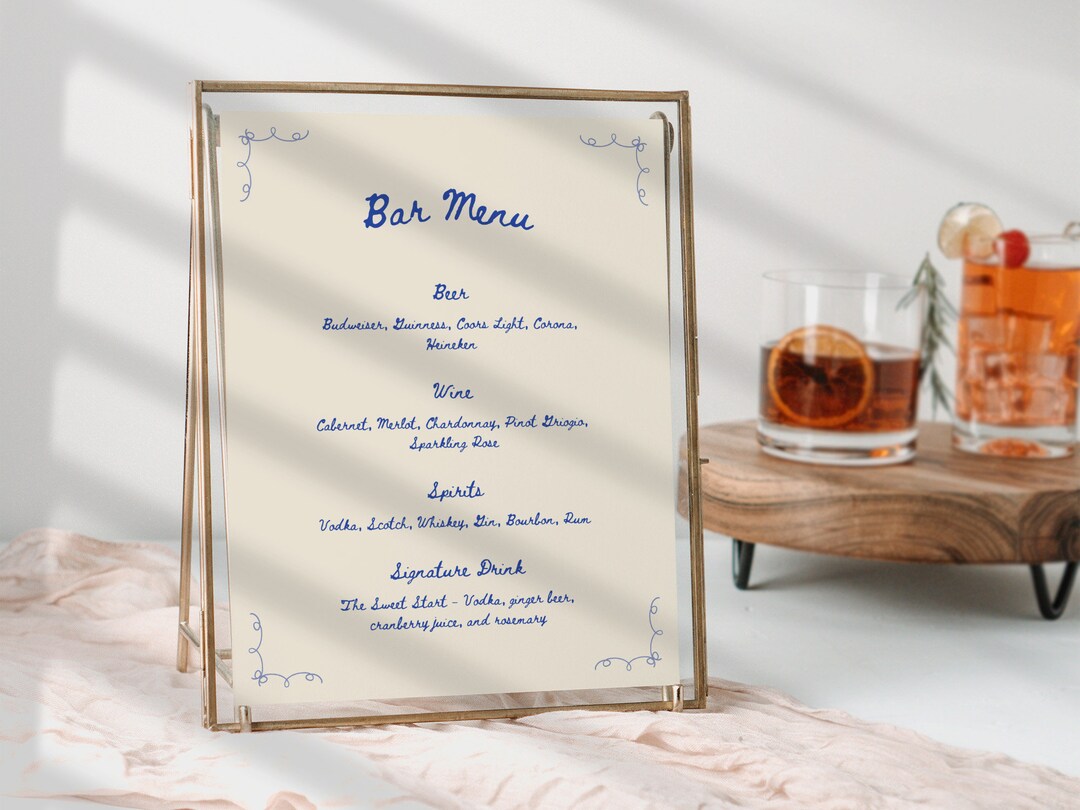 Bar Menu
Beer
Budweiser, Guinness, Coors Light, Corona,
Heineken
Wine
Cabernet, Merlot, Chardonnay, Pinot Griogio,
Sparkling Rose
Spirits
Vodka, Scotch, Whiskey, Gin, Bourbon, Rum
Signature Drink
The Sweet Start - Vodka, ginger beer,
cranberry juice, and rosemary